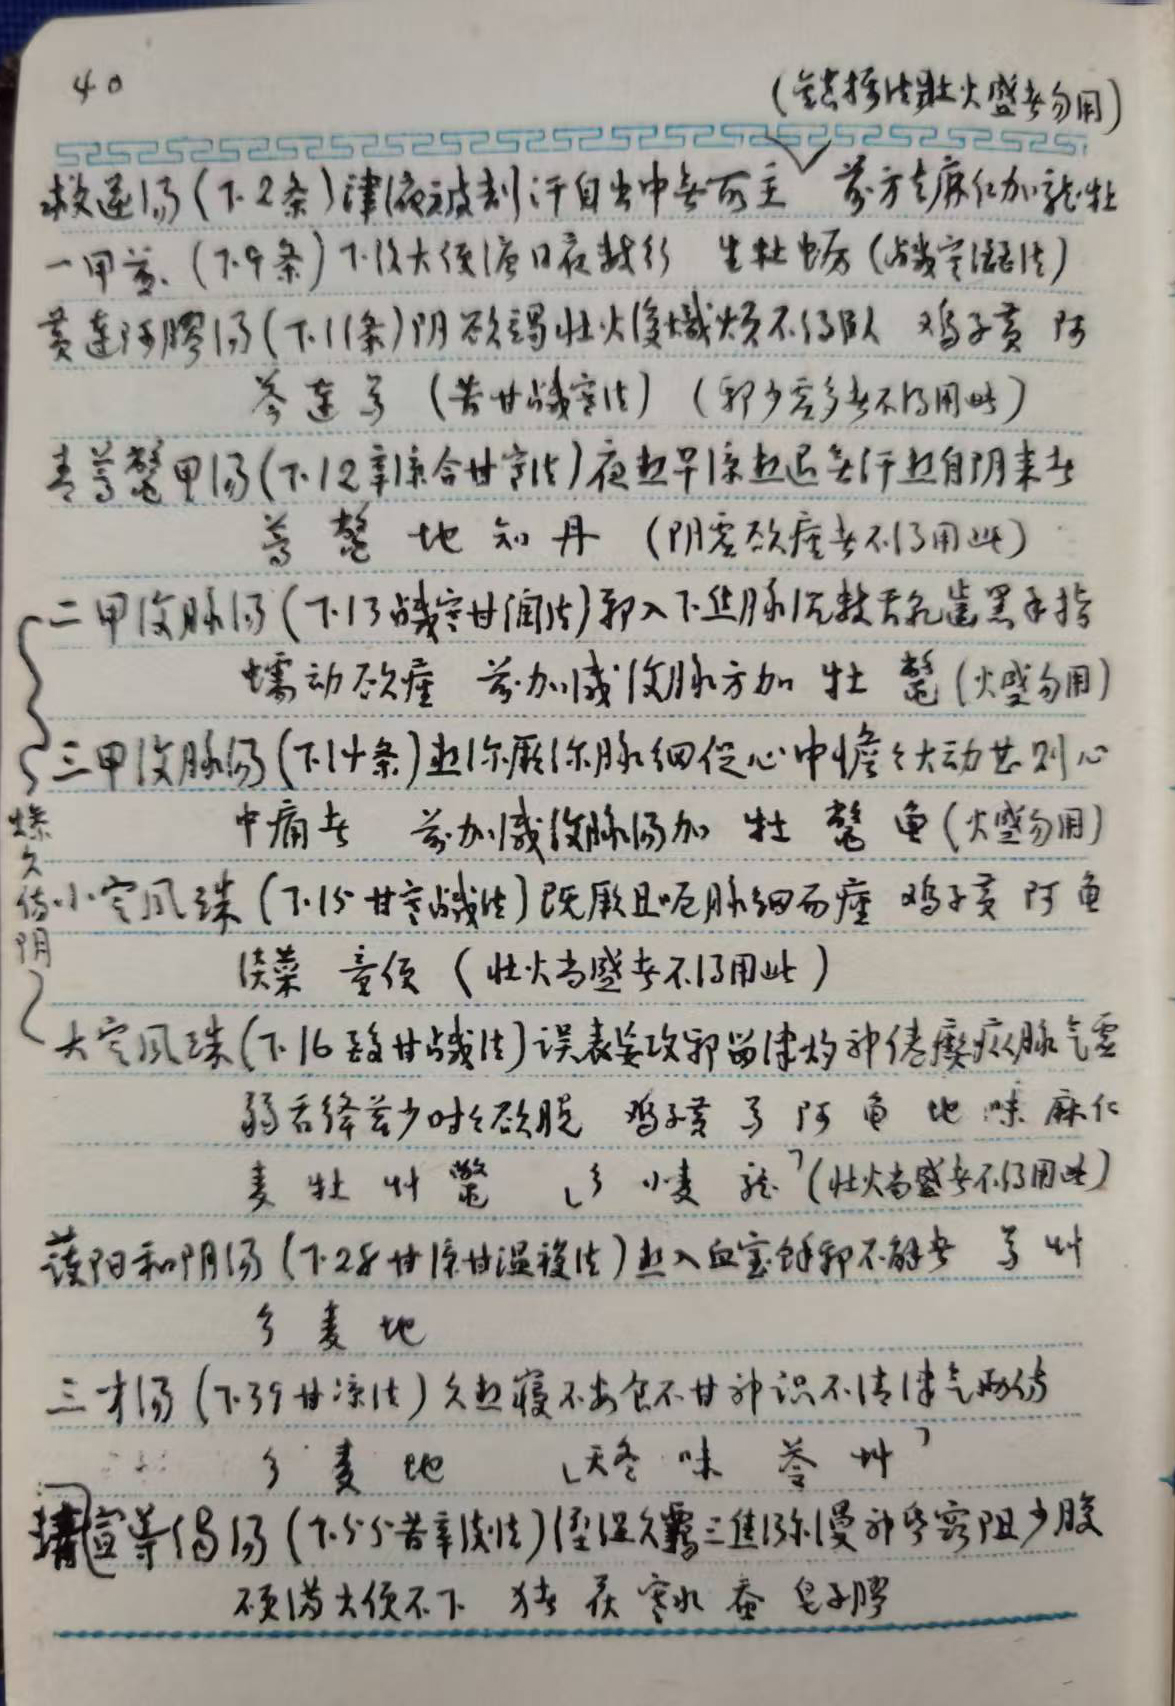 40
(镇摄法壮火盛者勿用)
救逆汤(下.2条)津液被劫汗自出中无所主 前方去麻仁加龙牡
一甲煎(下.9条)下后大便溏日夜数行 生牡蛎(咸寒涩法)
黄连阿膠汤(下.11条)阴欲竭壮火復熾烦不得臥 鸡子黄 阿
芩 连 芍 (苦甘咸寒法) (邪少虚多者不得用此)
青蒿鳖甲汤(下.12辛凉合甘寒法)夜热早凉热退无汗热自阴来者
蒿 鳖 地 知 丹 (阴虚欲痙者不得用此)
二甲復脉汤(下.13咸寒甘润法)邪入下焦脉沉数舌乾齿黑手指
蠕动欲痙 前加减復脉方加 牡 鳖(火盛勿用)
三甲復脉汤(下.14条)热深厥深脉细促心中憺々大动甚则心
中痛者 前加减復脉汤加 牡 鳖 龟(火盛勿用)
燥久伤阴
小定风珠(下.15甘寒咸法)既厥且呃脉细而痙 鸡子黄 阿 龟
淡菜 童便 (壮火尚盛者不得用此)
大定风珠(下.16酸甘咸法)误表妄攻邪留津灼神倦瘈疭脉气虚
弱舌绛苔少时々欲脱 鸡子黄 芍 阿 龟 地 味 麻仁
麦 牡 艸 鳖 「参 小麦 龙」(壮火尚盛者不得用此)
護阳和阴汤(下.28甘凉甘温複法)热入血室餘邪不解者 芍 艸
参 麦 地
三才汤(下.39甘凉法)久热寝不安食不甘神识不清津气两伤
参 麦 地 「天冬 味 苓 艸」
宣导浊汤(下.55苦辛淡法)湿温久羁三焦弥漫神昏窍阻少腹
硬满大便不下 猪 茯 寒水 蚕 皂子膠